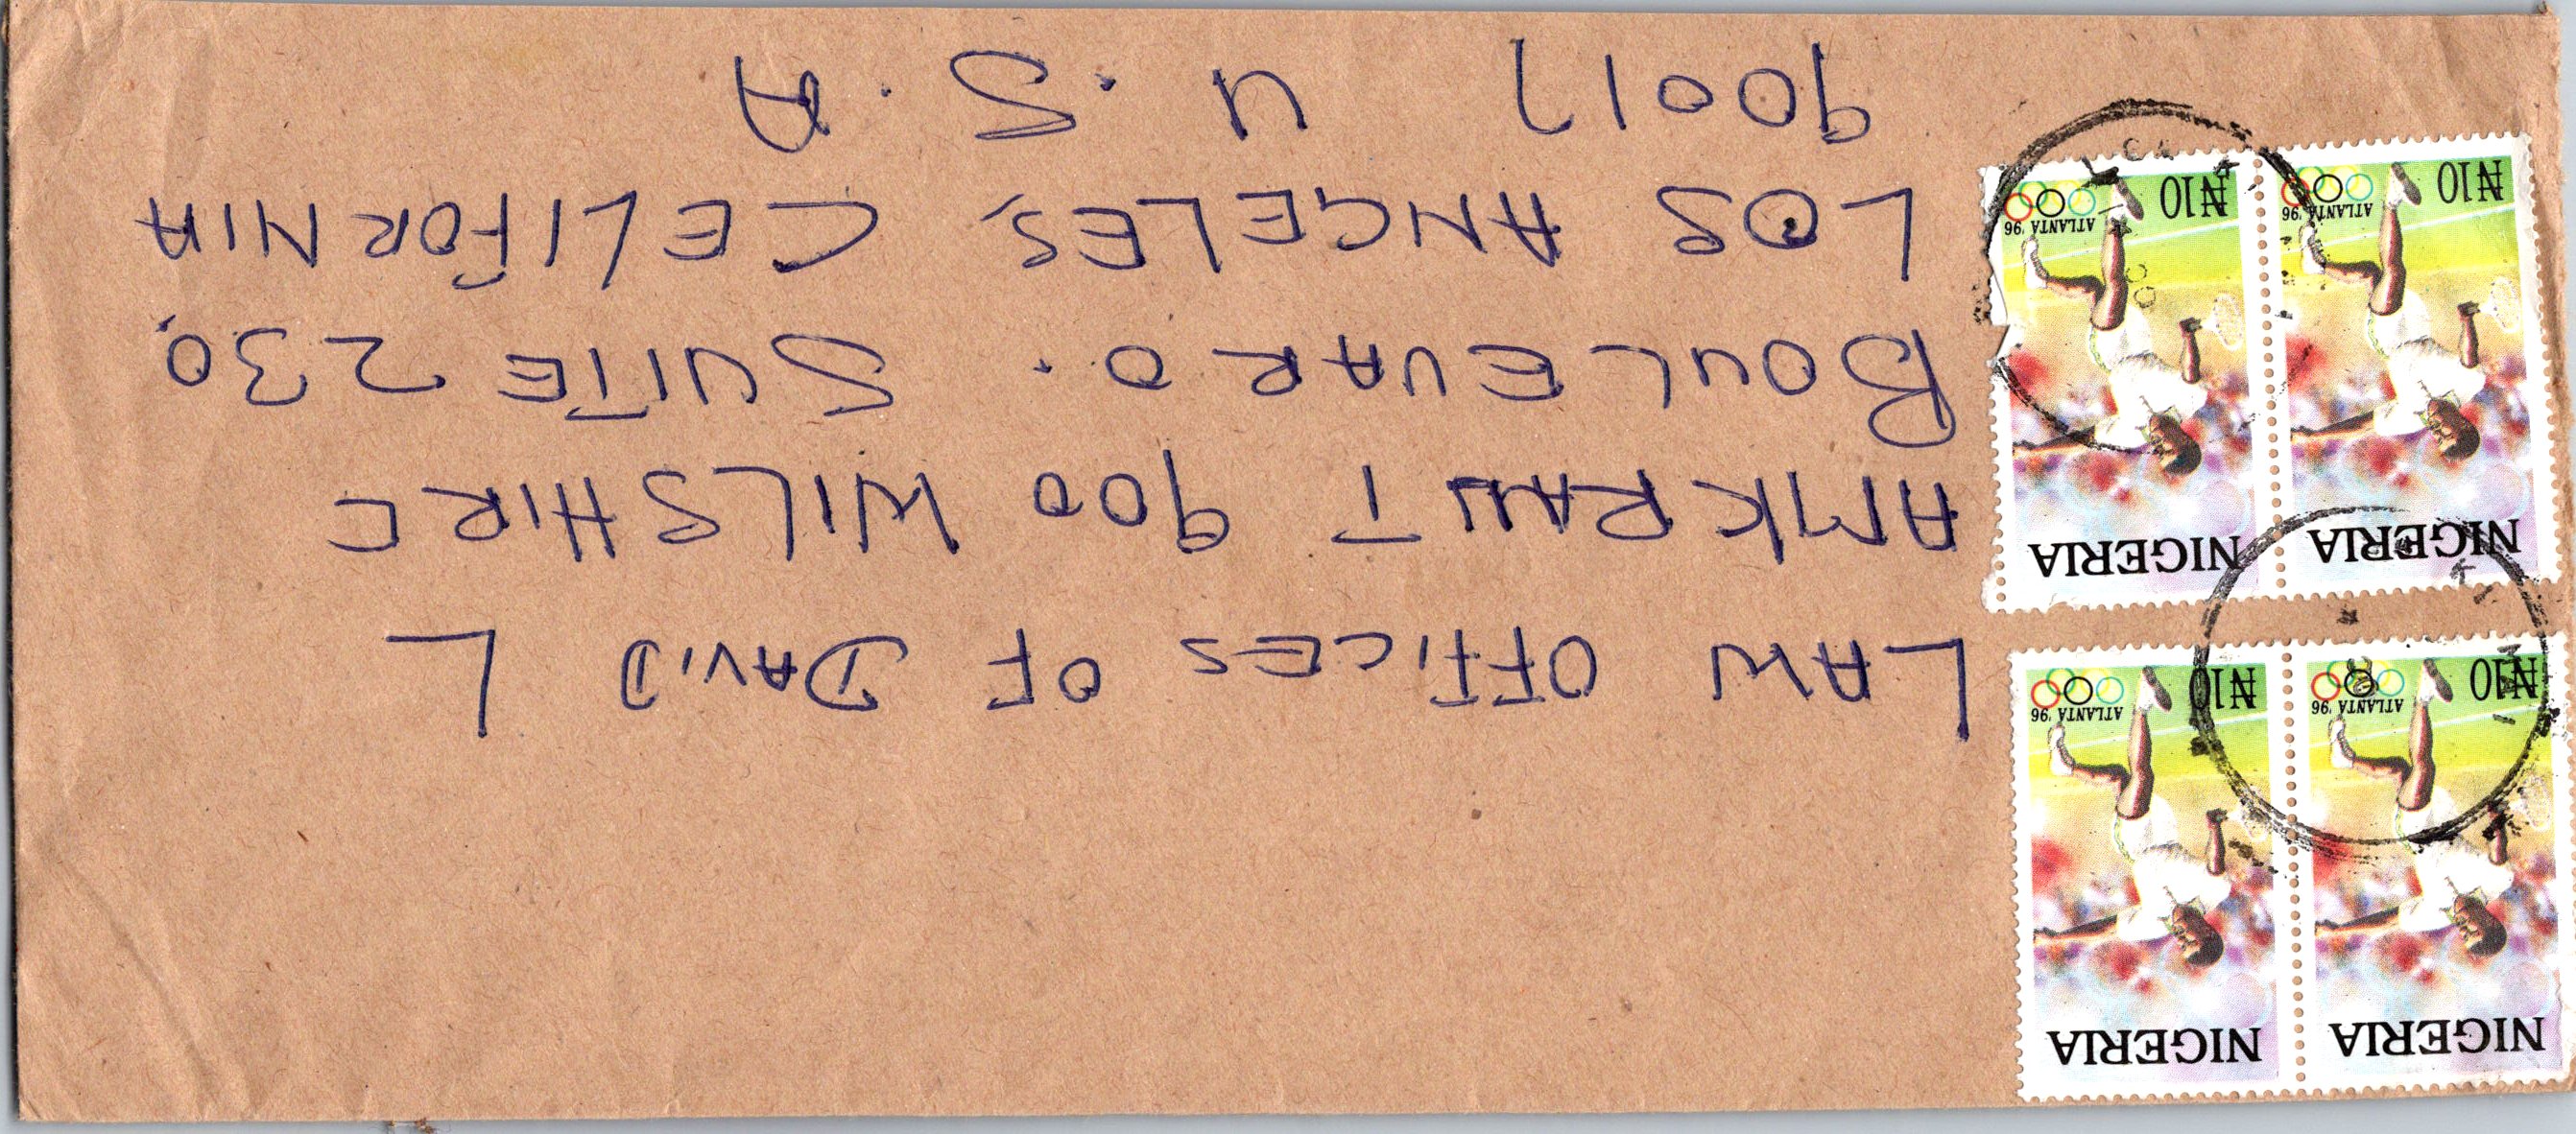 NIGERIA NIGERIA
ATLANTA '96 ATLANTA '96
₦10 ₦10
NIGERIA NIGERIA
ATLANTA '96 ATLANTA '96
₦10 ₦10
LAW OFFICES OF DAVID L
AMKRAUT 900 WILSHIRE
BOULEUARD. SUITE 230,
LOS ANGELES, CELIFORNIA
90017 U.S.A